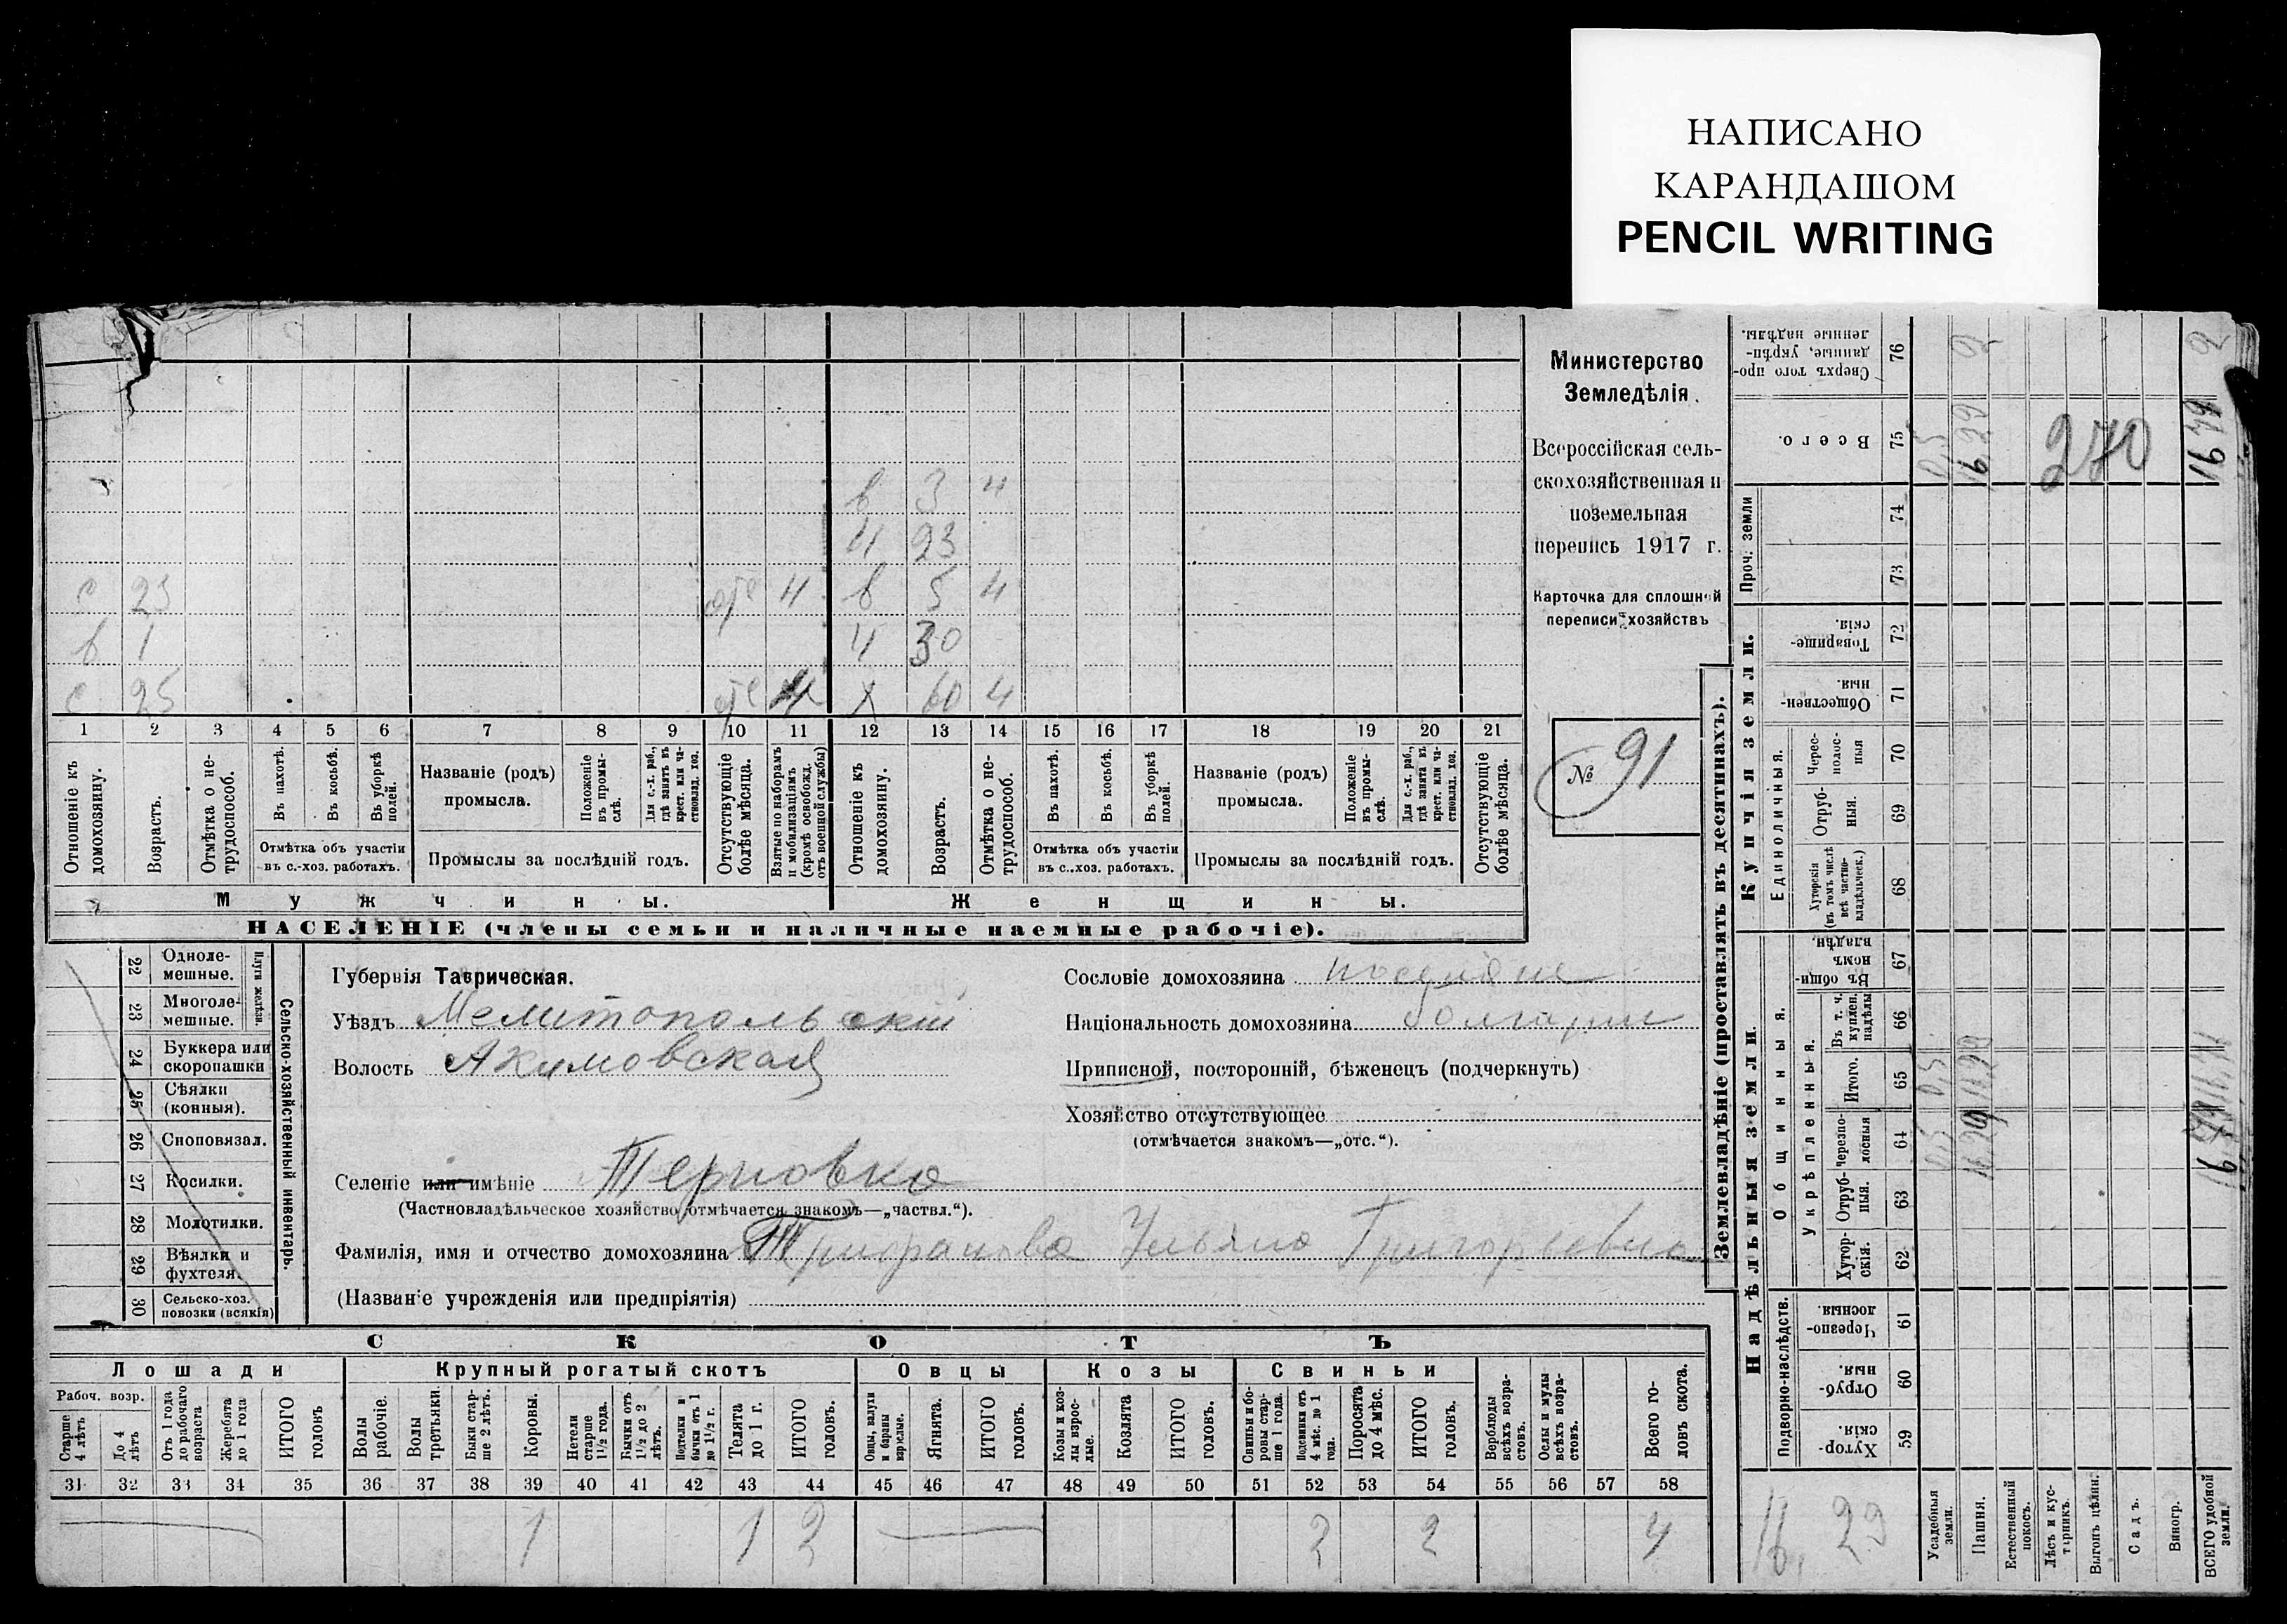 НАПИСАНО
КАРАНДАШОМ
PENCIL WRITING
Министерство
Земледѣлія.
Всероссійская сель-
скохозяйственная и
поземельная
перепись 1917 г.
Карточка для сплошной
переписи хозяйствъ
№ 91
в 3 ч
ч 23
с 23 отс ч в 5 ч
в 1 ч 30
с 25 отс ч х 60 ч
1 2 3 4 5 6 7 8 9 10 11 12 13 14 15 16 17 18 19 20 21
Отношеніе къ домохозяину.
Возрастъ.
Отмѣтка о не-трудоспособ.
Въ пахотѣ.
Въ косьбѣ.
Въ уборкѣ полей.
Отмѣтка объ участіи
въ с.-хоз. работахъ.
Названіе (родъ)
промысла.
Положеніе въ промы-слѣ.
Для с.-х. раб., гдѣ занятъ въ крест. или ча-стновлад. хоз.
Промыслы за послѣдній годъ.
Отсутствующіе болѣе мѣсяца.
Взятые по наборамъ и мобилизаціямъ (кромѣ освобожд. отъ военной службы)
Отношеніе къ домохозяину.
Возрастъ.
Отмѣтка о не-трудоспособ.
Въ пахотѣ.
Въ косьбѣ.
Въ уборкѣ полей.
Отмѣтка объ участіи
въ с.-хоз. работахъ.
Названіе (родъ)
промысла.
Положеніе въ промы-слѣ.
Для с.-х. раб., гдѣ занята въ крест. или ча-стновлад. хоз.
Промыслы за послѣдній годъ.
Отсутствующіе болѣе мѣсяца.
Мужчины. Женщины.
НАСЕЛЕНІЕ (члены семьи и наличные наемные рабочіе).
22 Одноле-мешные.
23 Многоле-мешные.
Плуги желѣзн.
24 Буккера или скоропашки
25 Сѣялки (конныя).
26 Сноповязал.
27 Косилки.
28 Молотилки.
29 Вѣялки и фухтеля.
30 Сельско-хоз. повозки (всякія)
Сельско-хозяйственный инвентарь.
Губернія Таврическая.
Уѣздъ Мелитопольскій
Волость Акимовская
Селеніе или имѣніе Терновка
(Частновладѣльческое хозяйство отмѣчается знакомъ—„частвл.“).
Фамилія, имя и отчество домохозяина Трифонова Ульяна Григорьевна
(Названіе учрежденія или предпріятія)
Сословіе домохозяина поселяне
Національность домохозяина болгары
Приписной, посторонній, бѣженецъ (подчеркнуть)
Хозяйство отсутствующее
(отмѣчается знакомъ—„отс.“).
СКОТЪ
Лошади Крупный рогатый скотъ Овцы Козы Свиньи
Рабоч. возр.
Старше 4 лѣтъ
До 4 лѣтъ
Отъ 1 года до рабочаго возраста
Жеребята до 1 года
ИТОГО головъ
Волы рабочіе.
Волы третьяки.
Быки стар-ше 2 лѣтъ.
Коровы.
Нетели старше 1½ года.
Бычки отъ 1½ до 2 лѣтъ.
Подтелки и бычки отъ 1 до 1½ г.
Телята до 1 г.
ИТОГО головъ.
Овцы, валухи и бараны взрослые.
Ягнята.
ИТОГО головъ.
Козы и коз-лы взрос-лые.
Козлята
ИТОГО головъ.
Свиньи и бо-ровы стар-ше 1 года.
Подсвинки отъ 4 мѣс. до 1 года.
Поросята до 4 мѣс.
ИТОГО головъ.
Верблюды всѣхъ возра-стовъ.
Ослы и мулы всѣхъ возра-стовъ.
Всего го-ловъ скота.
31 32 33 34 35 36 37 38 39 40 41 42 43 44 45 46 47 48 49 50 51 52 53 54 55 56 57 58
1 1 2 2 2 4
Землевладѣніе (проставлять въ десятинахъ).
Купчія земли.
Надѣльныя земли.
Проч. земли
Сверхъ того про-данные, укрѣп-ленные надѣлы. 76
Всего. 75
74
73
Товарище-скія. 72
Обществен-ныя. 71
Единоличныя.
Черес-полос-ныя 70
Отруб-ныя. 69
Хуторскія (въ томъ числѣ всѣ частно-владѣльческ.) 68
Общинныя.
Въ общи-номъ владѣн. 67
Укрѣпленныя.
Въ т. ч. куплен. надѣлы 66
Итого. 65
Черезпо-лосныя 64
Отруб-ныя. 63
Хутор-скія. 62
Подворно-наслѣдств.
Черезпо-лосныя. 61
Отруб-ныя. 60
Хутор-скія. 59
Усадебныя земли.
Пашня.
Естественный покосъ.
Лѣсъ и кус-тарникъ.
Выгонъ цѣлин.
Садъ.
Виногр.
ВСЕГО удобной земли.
0,5
16,29
2
270
16,79
2
0,5
0,5
16,29